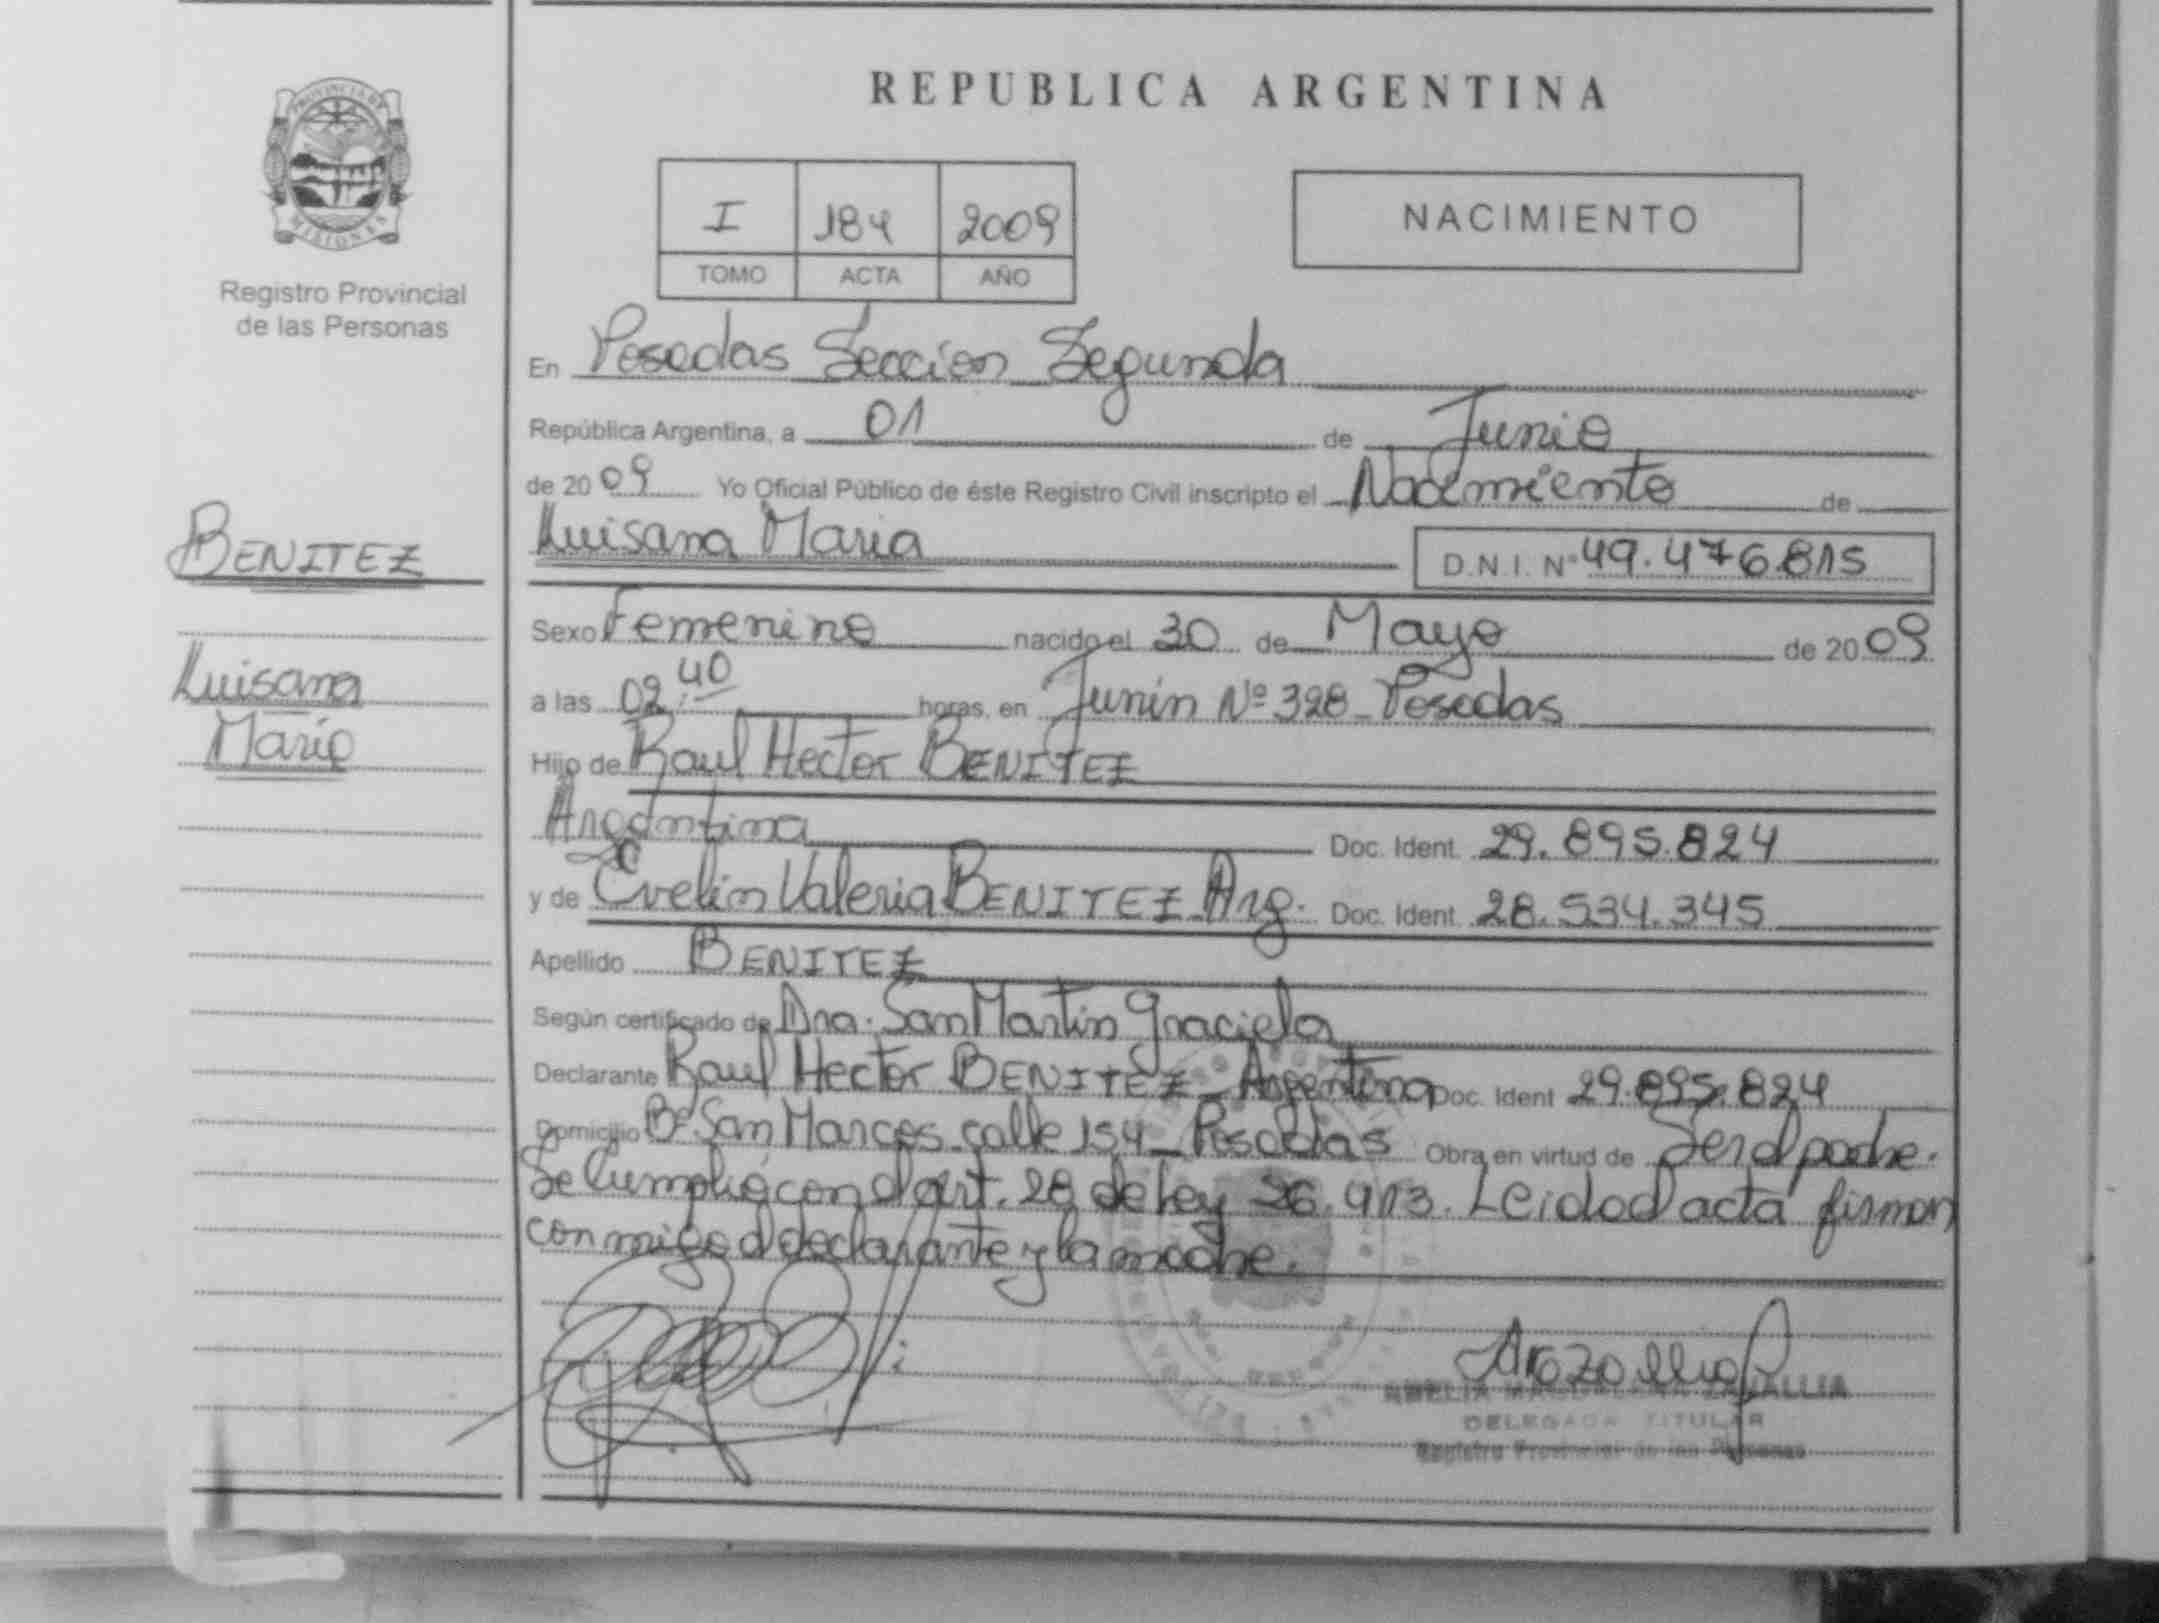 PROVINCIA DE
MISIONES
Registro Provincial
de las Personas
BENITEZ
Luisana
Maria
REPUBLICA ARGENTINA
I 184 2009
TOMO ACTA AÑO
NACIMIENTO
En Posadas Seccion Segunda
República Argentina, a 01 de Junio
de 2009 Yo Oficial Público de éste Registro Civil inscripto el Nacimiento de
Luisana Maria D.N.I. Nº 49.476.815
Sexo Femenino nacido el 30 de Mayo de 2009
a las 02:40 horas, en Junin Nº 328 - Posadas
Hijo de Raul Hector BENITEZ
Argentina Doc. Ident. 29.895.824
y de Evelin Valeria BENITEZ - Arg. Doc. Ident. 28.534.345
Apellido BENITEZ
Según certificado de Dra. San Martin Graciela
Declarante Raul Hector BENITEZ - Argentino Doc. Ident 29.895.824
Domicilio Bº San Marcos calle 154 - Posadas Obra en virtud de Ser el padre.
Se Cumplió con el art. 28 de Ley 26.413. Leido el acta firman
conmigo el declarante y la madre.
DELEGADA TITULAR
Registro Provincial de las Personas